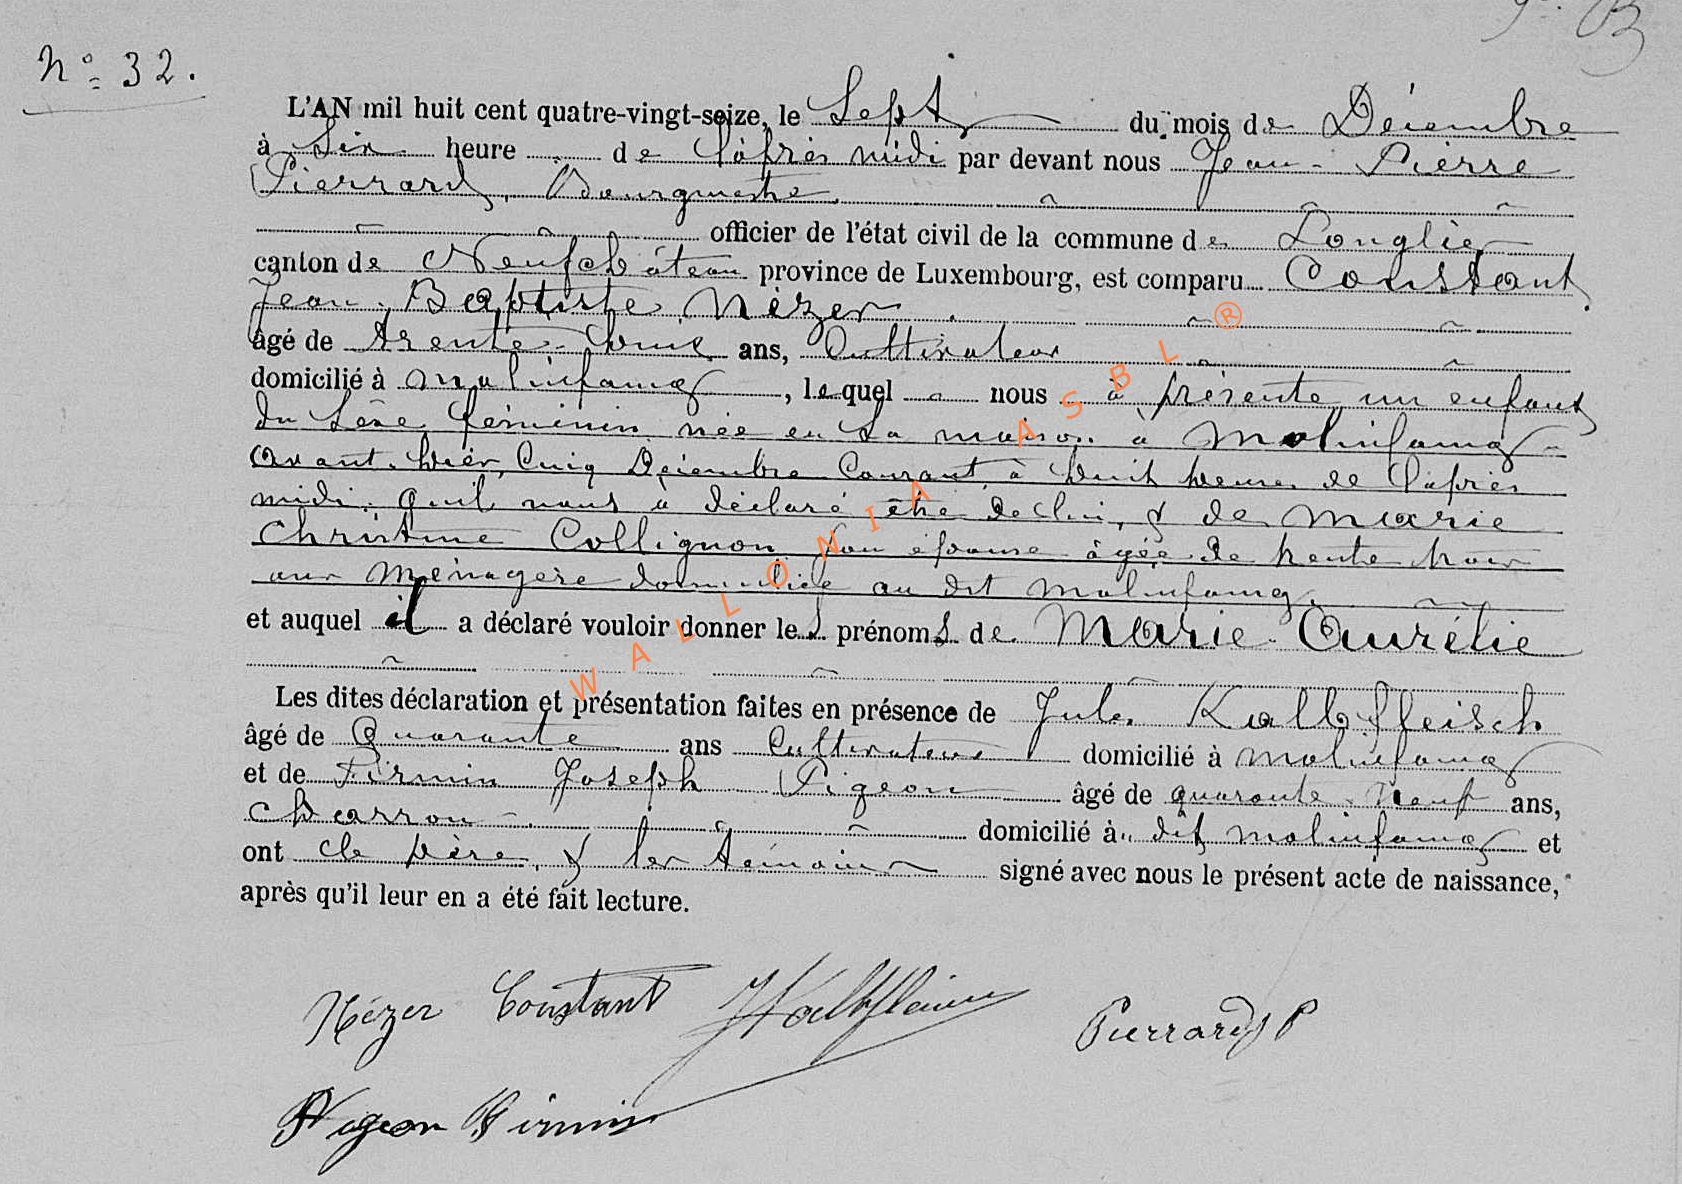 N° 32.
L'AN mil huit cent quatre-vingt-seize, le Sept du mois de Décembre
à Six heure de l'après midi par devant nous Jean-Pierre
Pierrard, Bourgmestre
officier de l'état civil de la commune de Longlier
canton de Neufchâteau province de Luxembourg, est comparu Constant
Jean-Baptiste Nézer
âgé de trente- ans, Cultivateur
domicilié à Molinfaing, lequel nous à présenté un enfant
du sexe féminin née en sa maison à Molinfaing
avant-hier, Cinq Décembre Courant à huit heures de l'après
midi, qu'il nous à déclaré être de lui, & de Marie
Christine Collignon son épouse âgée de trente trois
ans ménagère domiciliée au dit Molinfaing.
et auquel il a déclaré vouloir donner les prénoms de Marie-Aurélie
Les dites déclaration et présentation faites en présence de Jules Kalbfleisch
âgé de Quarante ans Cultivateur domicilié à Molinfaing
et de Firmin Joseph Pigeon âgé de quarante-neuf ans,
Charron domicilié à dit Molinfaing et
ont le père, & les témoins signé avec nous le présent acte de naissance,
après qu'il leur en a été fait lecture.
Nézer Constant JKalbfleisch Pierrard JP
Pigeon Firmin
WALLONIA ASBL ®